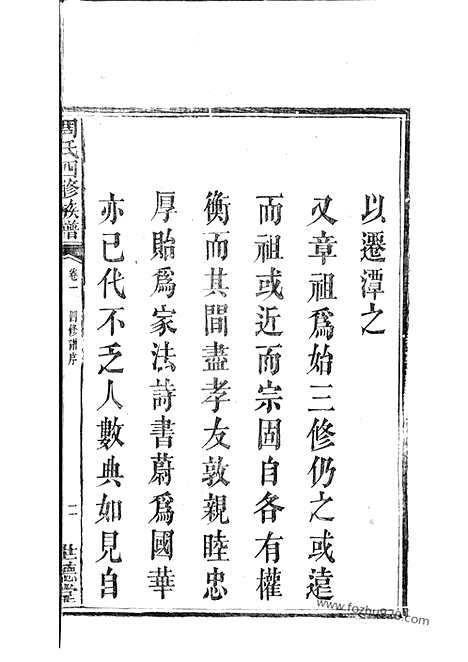 以遷潭之
又章祖爲始三修仍之或遠
而祖或近而宗固自各有權
衡而其間盡孝友敦親睦忠
厚貽爲家法詩書蔚爲國華
亦已代不乏人數典如見自
周氏四修族譜
卷一
四修譜序
二
世德堂
www.fozhu920.com